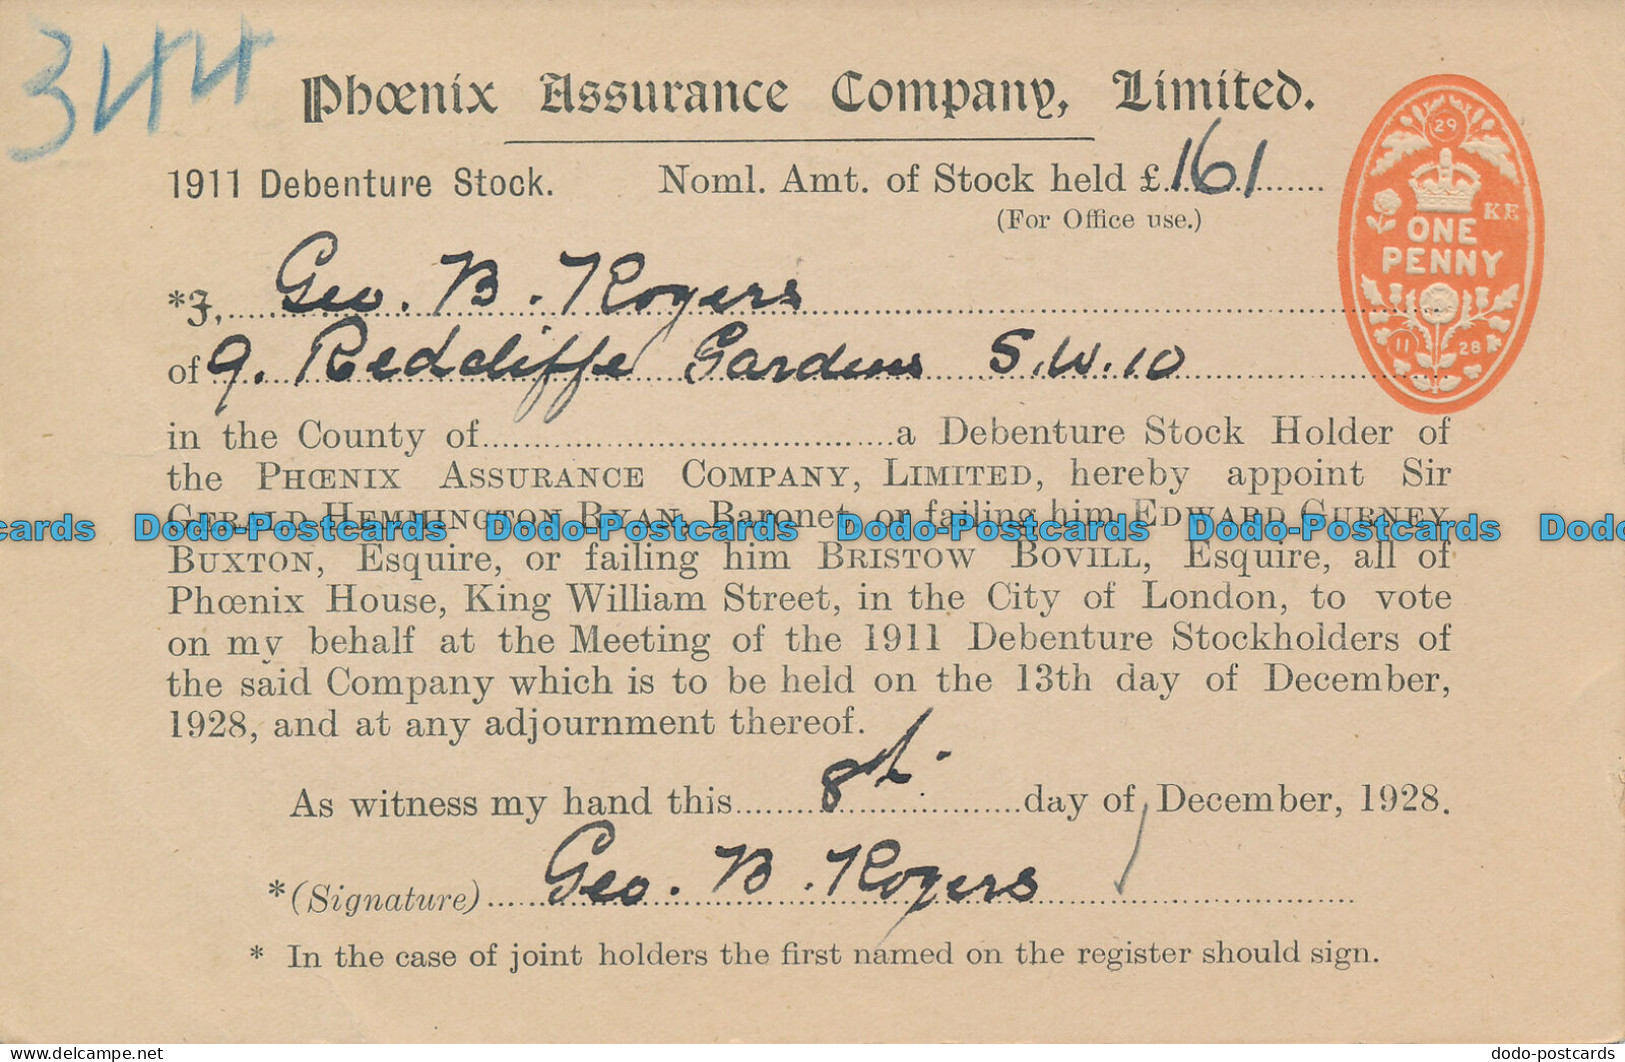 344
Phœnix Assurance Company, Limited.
1911 Debenture Stock. Noml. Amt. of Stock held £ 161
(For Office use.)
29
KE
ONE
PENNY
11 28
*I, Geo. B. Rogers
of 9. Redcliffe Gardens S.W.10
in the County of a Debenture Stock Holder of
the PHŒNIX ASSURANCE COMPANY, LIMITED, hereby appoint Sir
GERALD HEMMINGTON RYAN, Baronet, or failing him EDWARD GURNEY
Dodo-Postcards Dodo-Postcards Dodo-Postcards Dodo-Postcards
BUXTON, Esquire, or failing him BRISTOW BOVILL, Esquire, all of
Phœnix House, King William Street, in the City of London, to vote
on my behalf at the Meeting of the 1911 Debenture Stockholders of
the said Company which is to be held on the 13th day of December,
1928, and at any adjournment thereof.
As witness my hand this 8th day of December, 1928.
*(Signature) Geo. B. Rogers
* In the case of joint holders the first named on the register should sign.
www.delcampe.net dodo-postcards